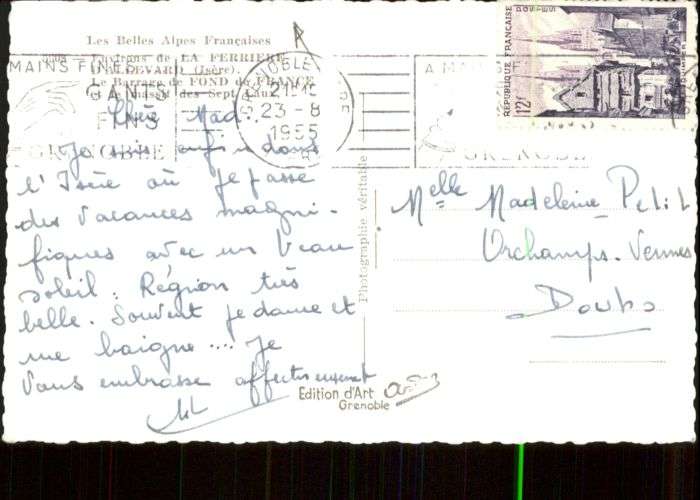 Les Belles Alpes Françaises
Environs de LA FERRIERE
D'ALLEVARD (Isère).
Le Barrage de FOND de FRANCE
et le massif des Sept Laux
MAINS FINES
GANTS
FINS
GRENOBLE
GRENOBLE
21H15
23-8
1955
A MAINS
GRENOBLE
REPUBLIQUE FRANÇAISE
POSTES
12F
Chère Mad.
Je suis enfin dans
l'Isère où je passe
des vacances magni-
fiques avec un beau
soleil. Région très
belle. Souvent je danse et
me baigne.... Je
vous embrasse affectueusement
ML
Photographie véritable
Edition d'Art
Grenoble
Melle Madeleine Petit
Orchamps-Vennes
Doubs